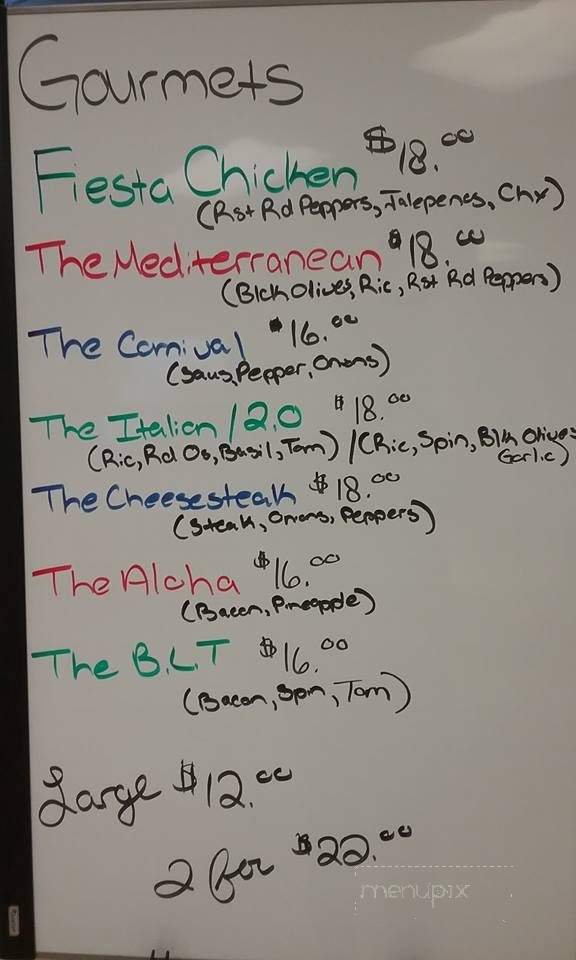 Gourmets
Fiesta Chicken $18.00
(Rst Rd Peppers, Jalepenos, Chx)
The Mediterranean $18.00
(Blck Olives, Ric, Rst Rd Peppers)
The Cornival $16.00
(Saus, Pepper, Onons)
The Italian / 2.0 $18.00
(Ric, Rd Os, Basil, Tom) / (Ric, Spin, Blk Olives
Garlic)
The Cheesesteak $18.00
(Steak, Onons, Peppers)
The Aloha $16.00
(Bacon, Pineapple)
The B.L.T $16.00
(Bacon, Spin, Tom)
Large $12.00
2 for $22.00
menupix